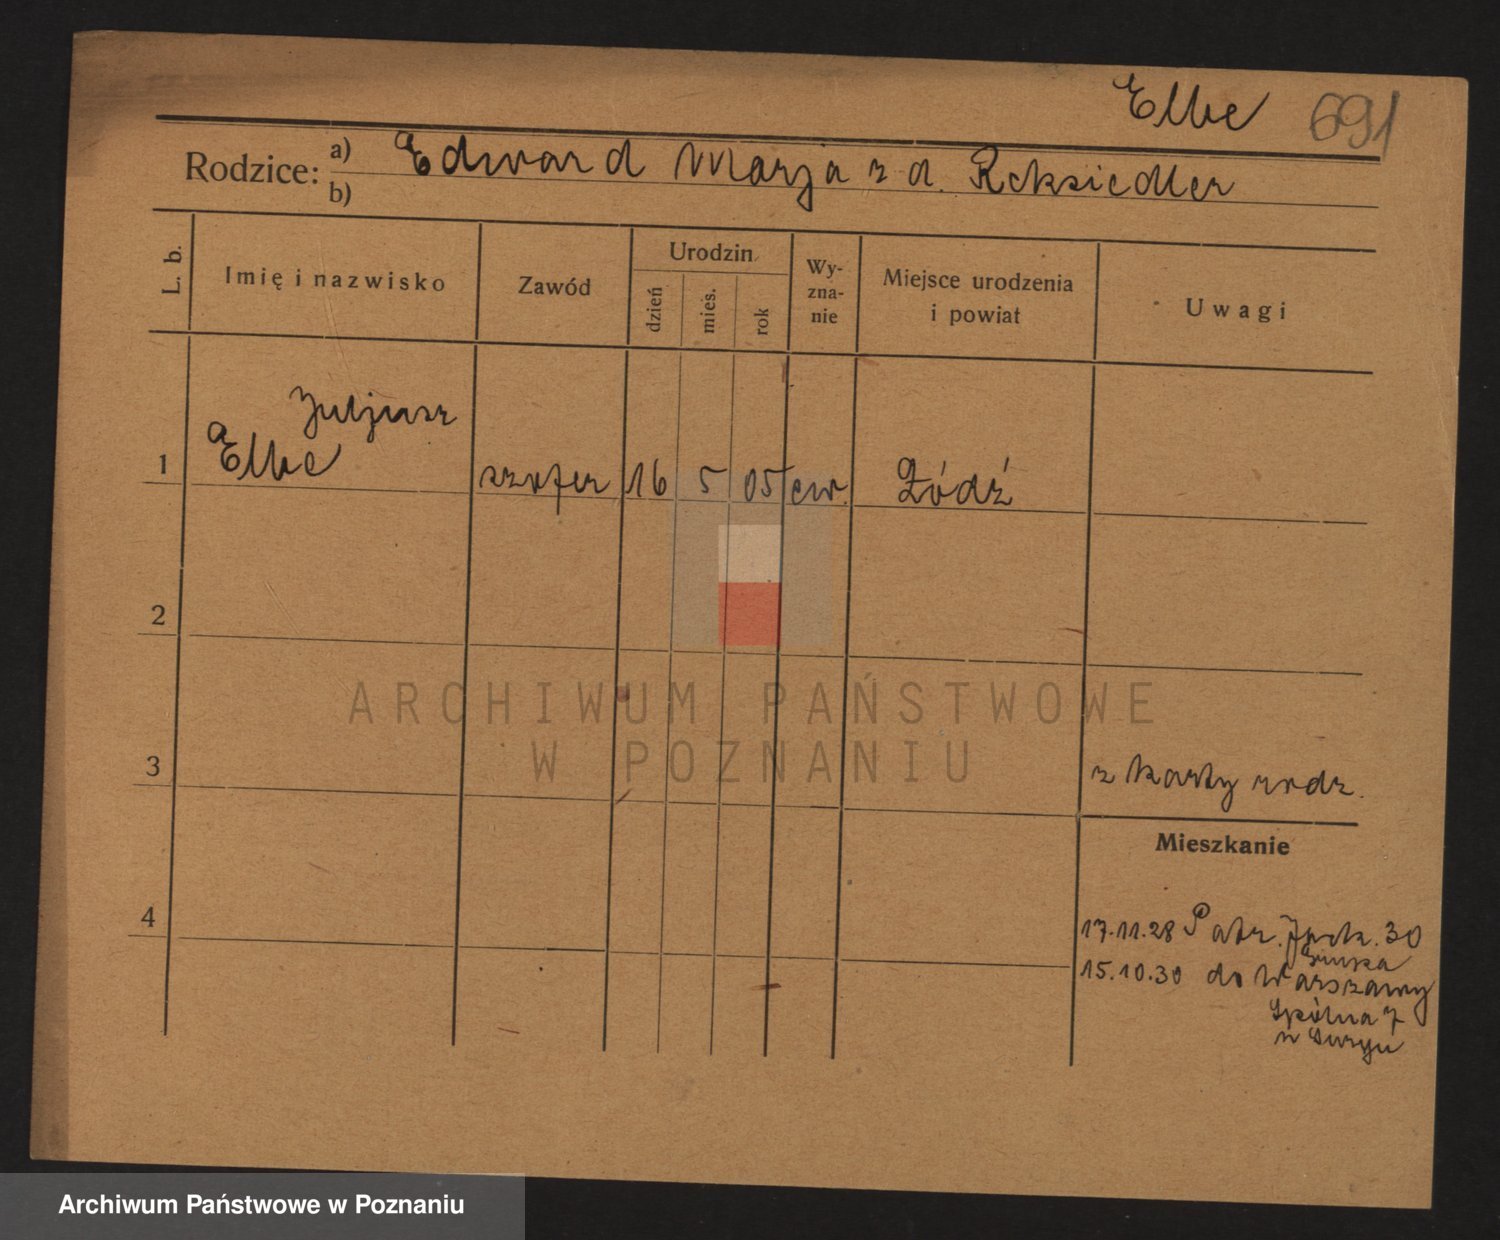 Elbe 691
Rodzice: a) Edward Marja z d. Reksiedler
b)
L. b.
Imię i nazwisko
Zawód
Urodzin
dzień
mies.
rok
Wy-
zna-
nie
Miejsce urodzenia
i powiat
Uwagi
Juljusz
1 Elbe szofer 16 5 05 ew. Łódź
2
ARCHIWUM PAŃSTWOWE
W POZNANIU
3 z karty rodz.
Mieszkanie
4
17.11.28 Patr. 30
15.10.30 do Warszawy
Spólna 7
Archiwum Państwowe w Poznaniu